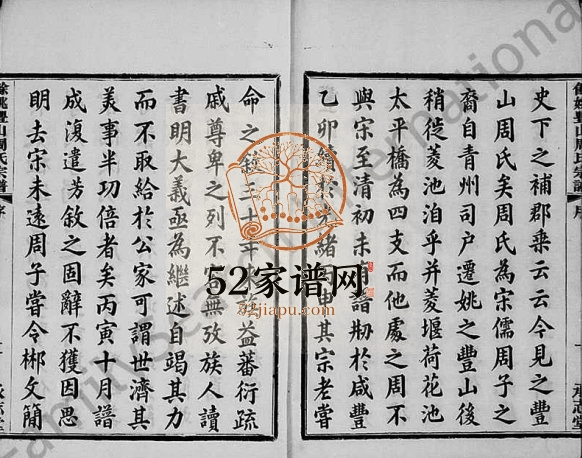 史下之補郡乗云云今見之豐
山周氏矣周氏為宋儒周子之
裔自青州司户遷姚之豐山後
稍徙菱池泊乎并菱堰荷花池
太平橋為四支而他處之周不
與宋至清初未 譜刱於咸豐
乙卯續於光緒丙申其宗老嘗
命之叙三十年 益蕃衍疏
戚尊卑之列不 無攷族人讀
書明大義亟為繼述自竭其力
而不取給於公家可謂世濟其
美事半功倍者矣丙寅十月譜
成復遣芳敘之固辭不獲因思
明去宋未逺周子嘗令郴文簡
餘姚豐山周氏宗譜
序
承志堂
52家谱网
52jiapu.com
Family Search International